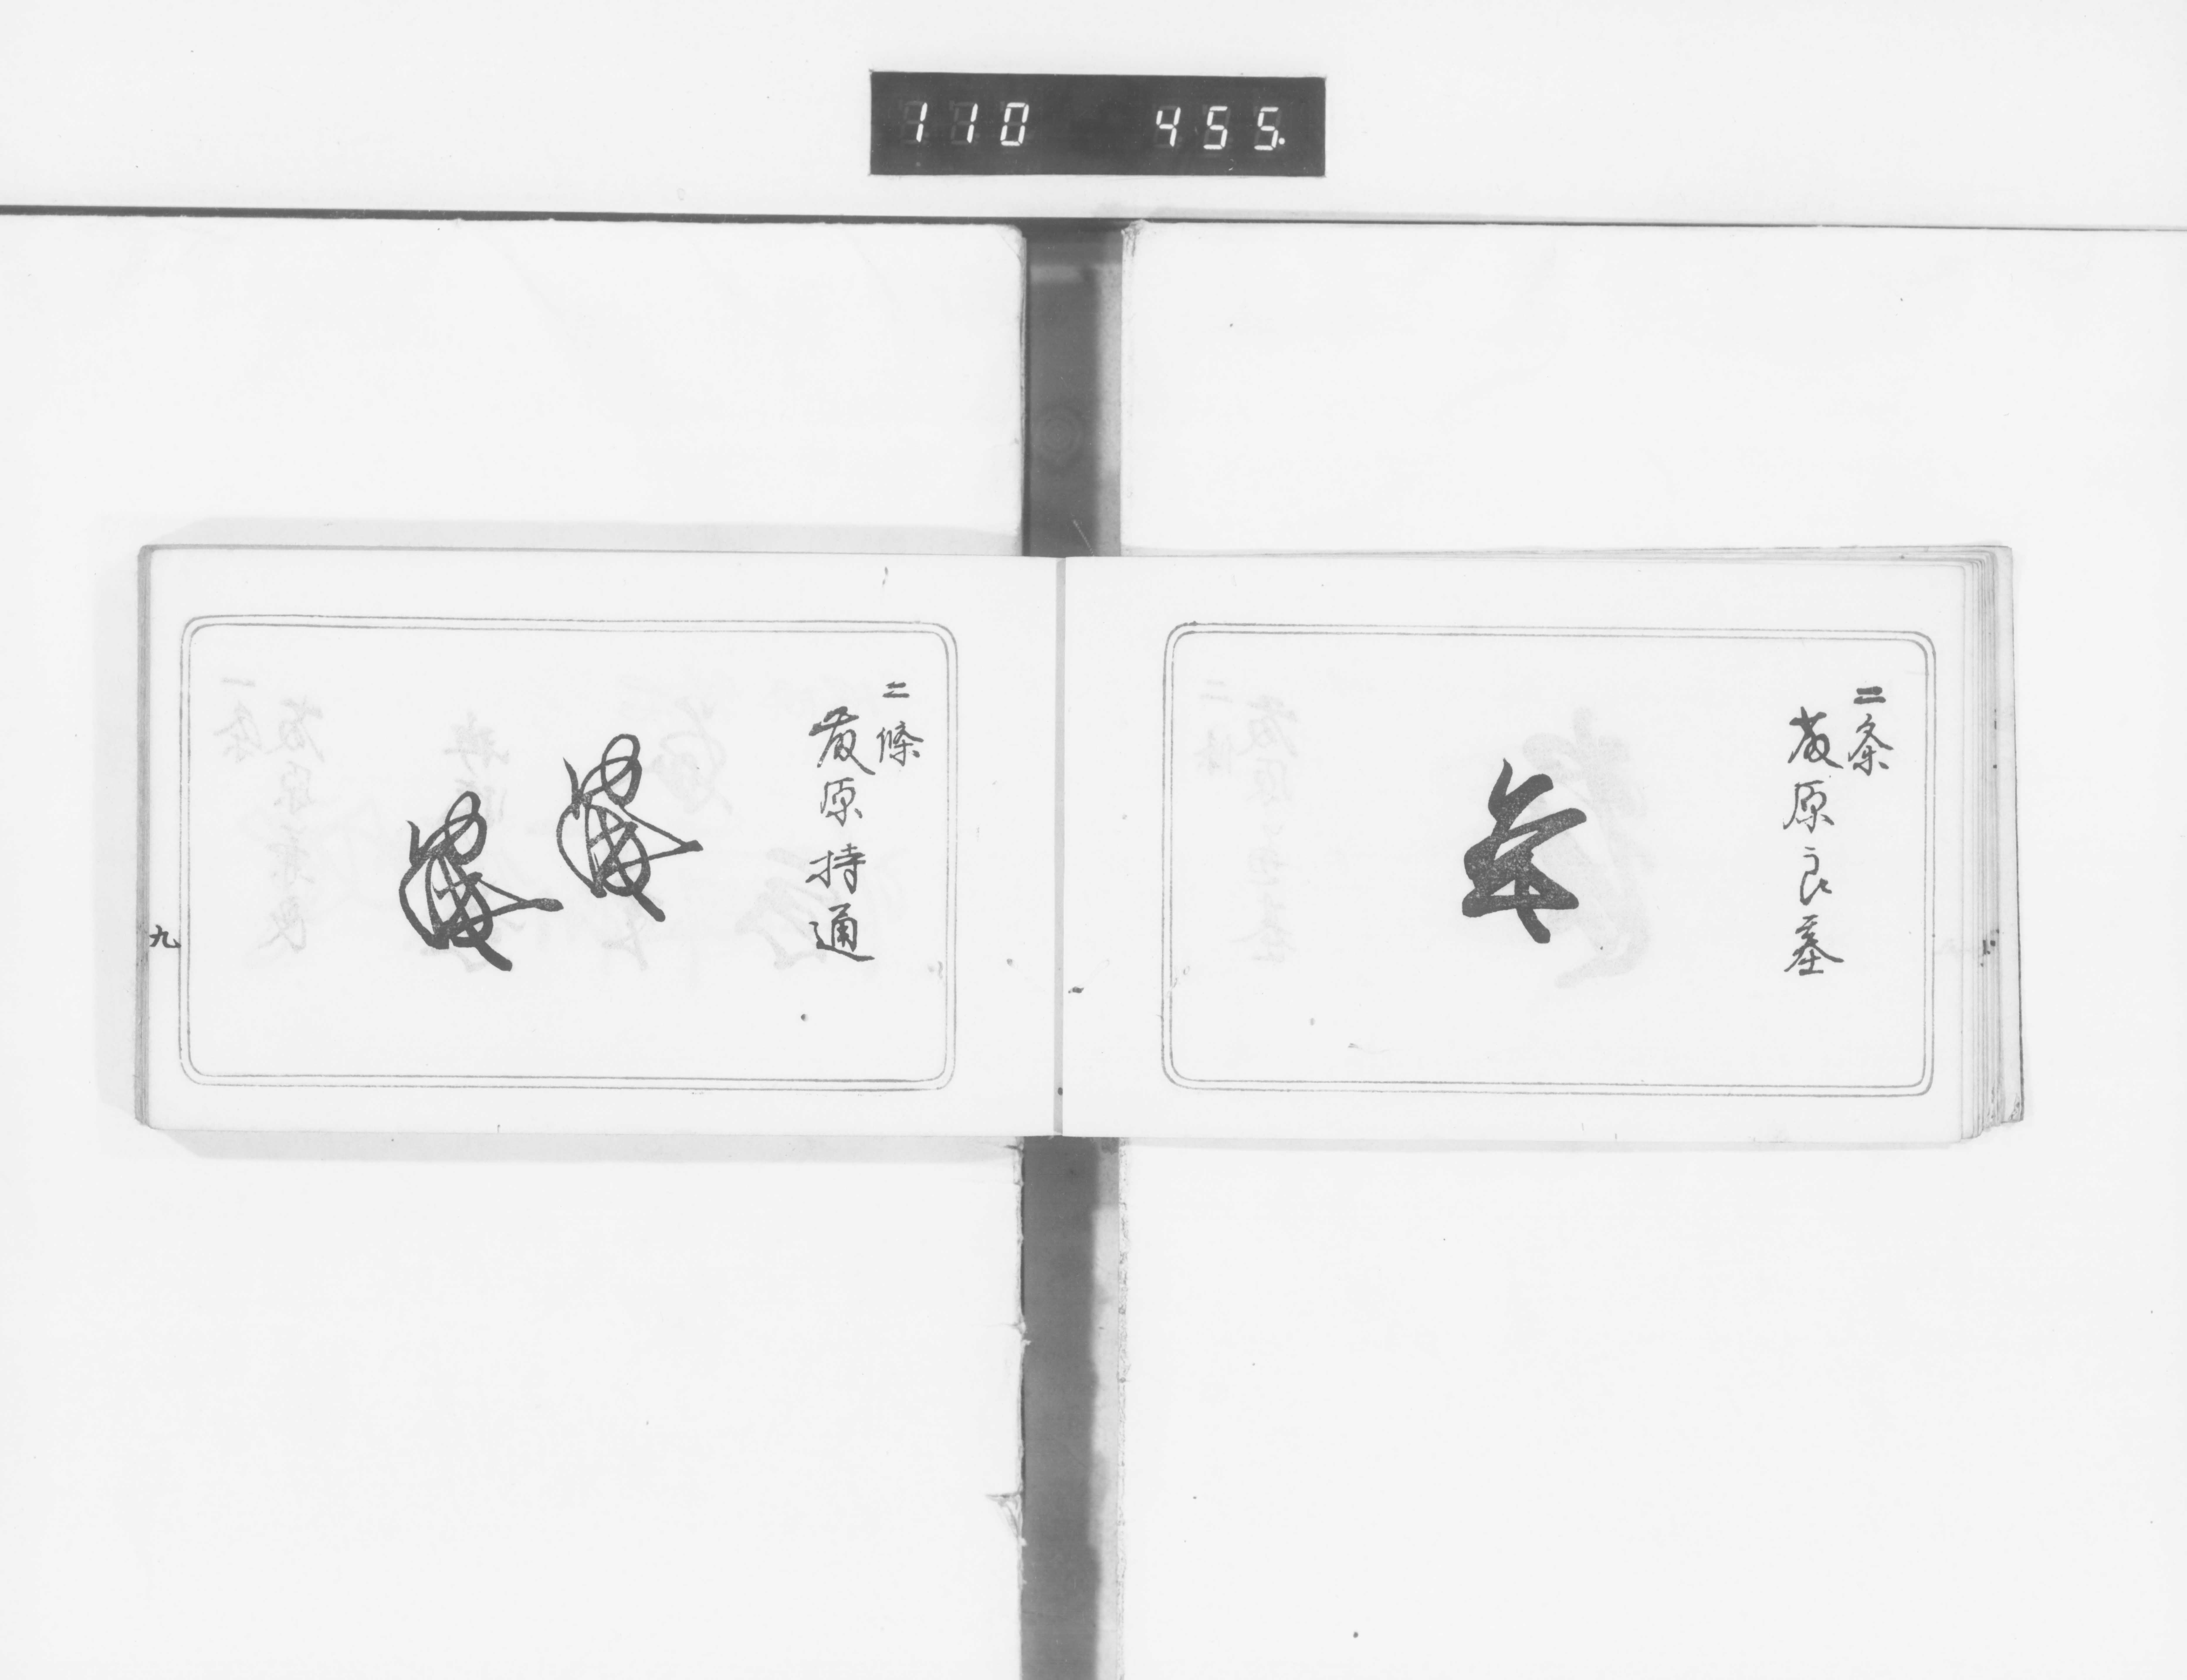 110 455.
二条
藤原良基
二條
藤原持通
九